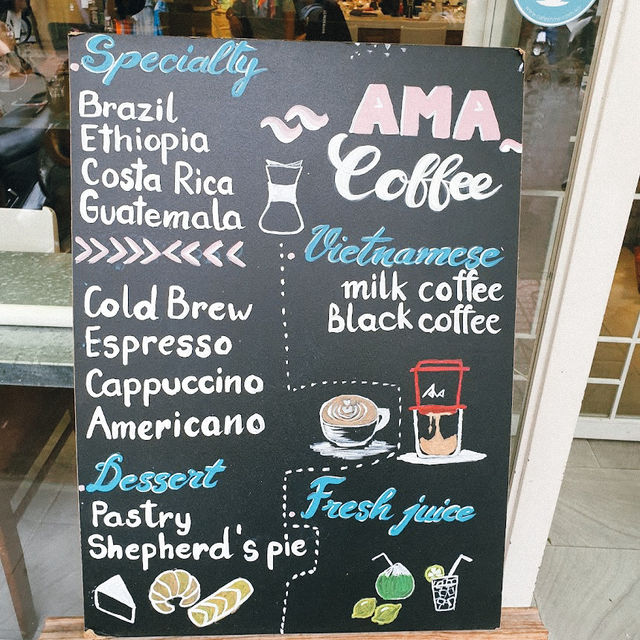 Specialty
Brazil
Ethiopia
Costa Rica
Guatemala
Cold Brew
Espresso
Cappuccino
Americano
Dessert
Pastry
Shepherd's pie
AMA
Coffee
Vietnamese
milk coffee
Black coffee
Fresh juice